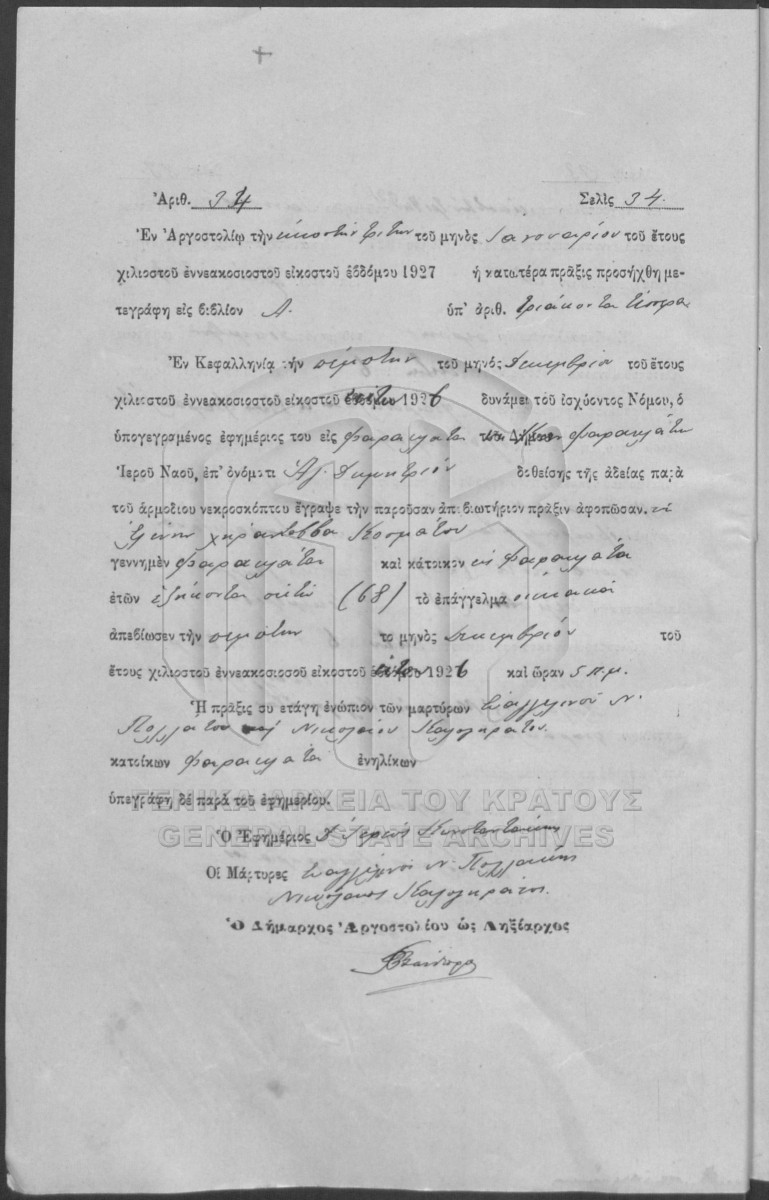 Ἀριθ. 34 Σελὶς 34.
Ἐν Ἀργοστολίῳ τὴν εἰκοστὴν τρίτην τοῦ μηνὸς Ἰανουαρίου τοῦ ἔτους
χιλιοστοῦ ἐννεακοσιοστοῦ εἰκοστοῦ ἑβδόμου 1927 ἡ κατωτέρα πρᾶξις προσήχθη με-
τεγράφη εἰς βιβλίον Α. ὑπ' ἀριθ. τριάκοντα τέσσερα
Ἐν Κεφαλληνίᾳ τὴν πέμπτην τοῦ μηνὸς Δεκεμβρίου τοῦ ἔτους
χιλιοστοῦ ἐννεακοσιοστοῦ εἰκοστοῦ ἕκτου 1926 δυνάμει τοῦ ἰσχύοντος Νόμου, ὁ
ὑπογεγραμένος ἐφημέριος του εἰς Φαρακλάτα Φαρακλάτων
Ἱεροῦ Ναοῦ, ἐπ' ὀνόματι Ἁγ. Δημητρίου δοθείσης τῆς ἀδείας παρὰ
τοῦ ἁρμοδίου νεκροσκόπτου ἔγραψε τὴν παροῦσαν ἀποβιωτήριον πρᾶξιν ἀφοπῶσαν.
Ἑλένην χήραν Κοσμάτου
γεννημὲν Φαρακλάτα καὶ κάτοικον εἰς Φαρακλάτα
ἐτῶν ἑξήκοντα ὀκτὼ (68) τὸ ἐπάγγελμα οἰκιακά
ἀπεβίωσεν τὴν πέμπτην το μηνὸς Δεκεμβρίου τοῦ
ἔτους χιλιοστοῦ ἐννεακοσιοσοῦ εἰκοστοῦ ἕκτου 1926 καὶ ὥραν 5 π.μ.
Ἡ πρᾶξις συ ετάγη ἐνώπιον τῶν μαρτύρων Εὐαγγελινοῦ Ν.
καὶ Νικολάου Καλογηράτου
κατοίκων Φαρακλάτα ἐνηλίκων
ὑπεγράφη δὲ παρὰ τοῦ ἐφημερίου.
ΓΕΝΙΚΑ ΑΡΧΕΙΑ ΤΟΥ ΚΡΑΤΟΥΣ
GENERAL STATE ARCHIVES
Ὁ Ἐφημέριος Ἱερεὺς
Οἱ Μάρτυρες Εὐαγγελινὸς Ν.
Νικόλαος Καλογηρᾶτος.
Ὁ Δήμαρχος Ἀργοστολίου ὡς Ληξίαρχος